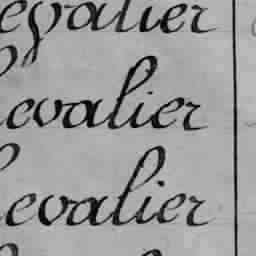 evalier
evalier
hevalier